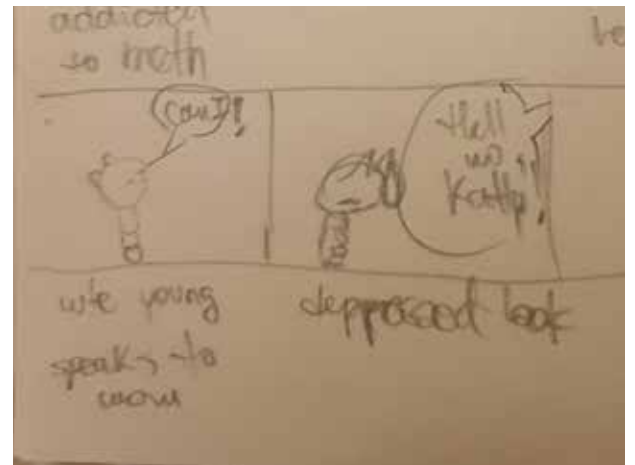 addicted
so meth
Can I!
Hell
no
Katty!
wte young
speaks to
mom
deppresed look